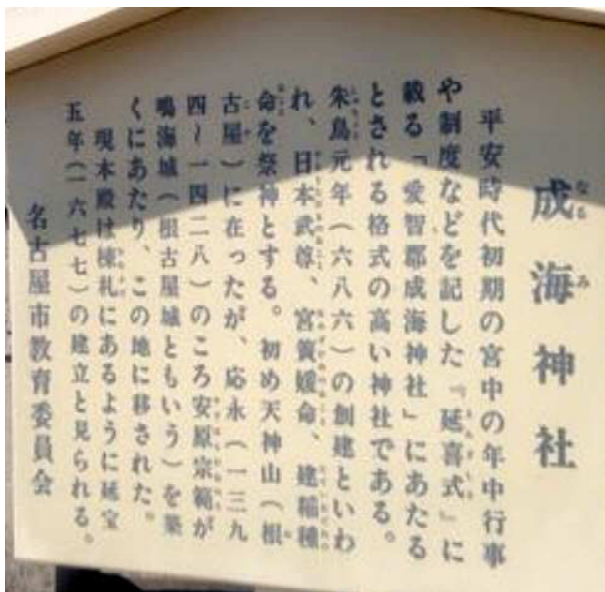 成海神社
平安時代初期の宮中の年中行事
や制度などを記した『延喜式』に
載る「愛智郡成海神社」にあたる
とされる格式の高い神社である。
朱鳥元年(六八六)の創建といわ
れ、日本武尊、宮簀媛命、建稲種
命を祭神とする。初め天神山(根
古屋)に在ったが、応永(一三九
四〜一四二八)のころ安原宗範が
鳴海城(根古屋城ともいう)を築
くにあたり、この地に移された。
現本殿は棟札にあるように延宝
五年(一六七七)の建立と見られる。
名古屋市教育委員会